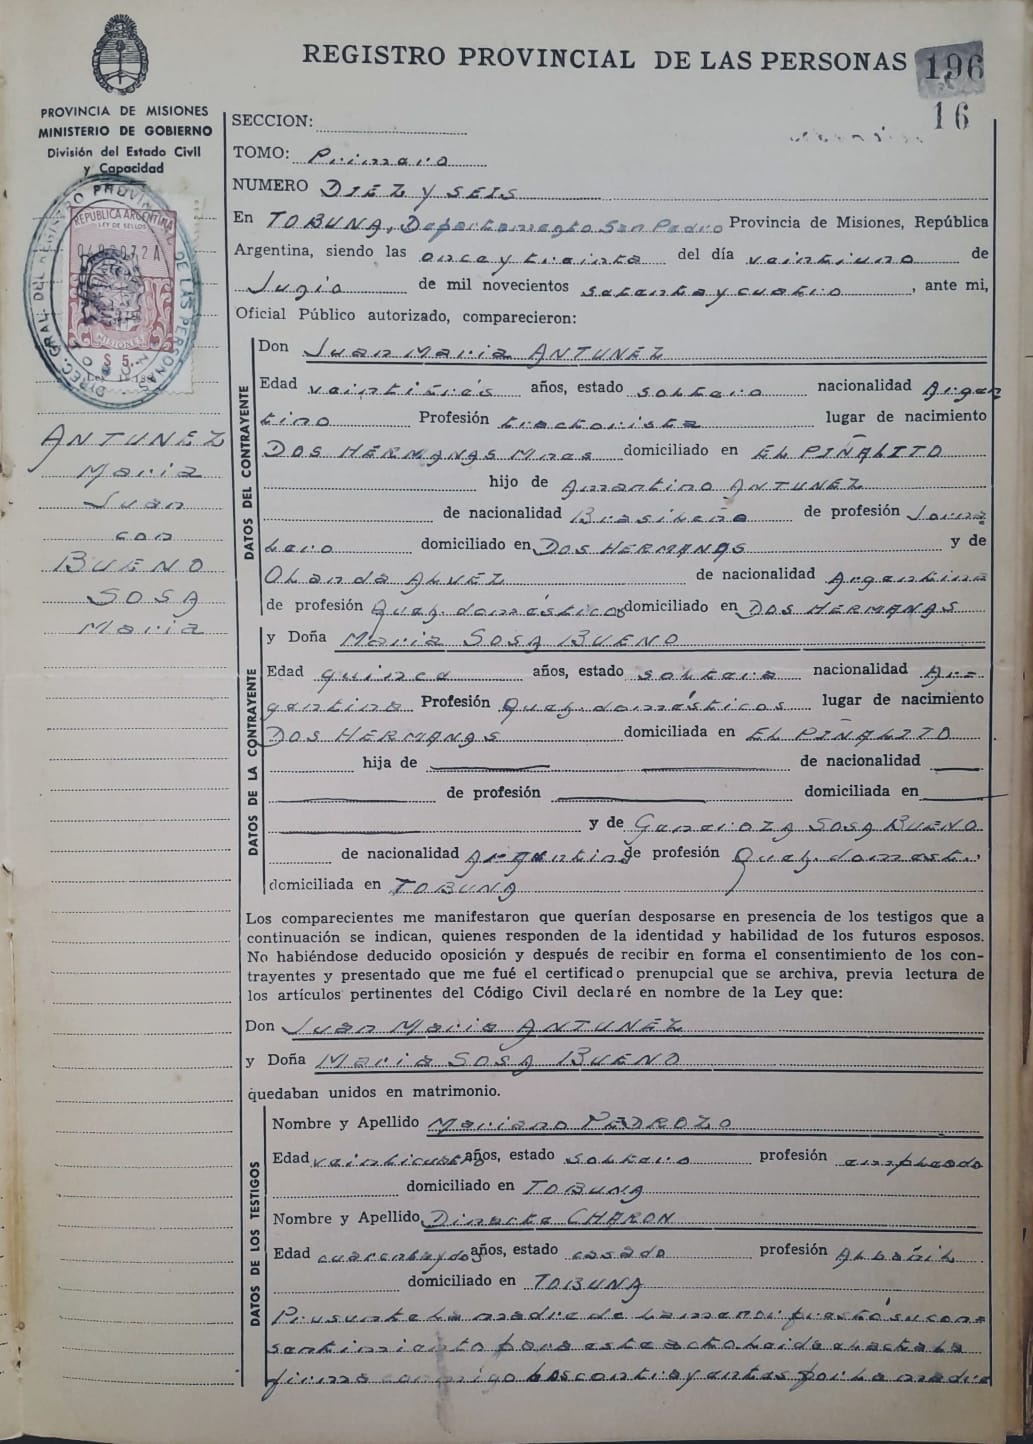 REGISTRO PROVINCIAL DE LAS PERSONAS 196
16
PROVINCIA DE MISIONES
MINISTERIO DE GOBIERNO
División del Estado Civil
y Capacidad
DIREC. GRAL. DEL REGISTRO PROVINCIAL DE LAS PERSONAS
REPUBLICA ARGENTINA
LEY DE SELLOS
MISIONES
$ 5.
ANTUNEZ
Maria
Juan
con
BUENO
SOSA
Maria
SECCION:
TOMO: Primero
NUMERO DIEZ y SEIS
En TOBUNA, Departamento San Pedro Provincia de Misiones, República
Argentina, siendo las once y treinta del día veintiuno de
Junio de mil novecientos setenta y cuatro, ante mi,
Oficial Público autorizado, comparecieron:
DATOS DEL CONTRAYENTE
Don Juan Maria ANTUNEZ
Edad veintitrés años, estado soltero nacionalidad Argen
tino Profesión tractorista lugar de nacimiento
DOS HERMANAS Mnes domiciliado en EL PIÑALITO
hijo de Amantino ANTUNEZ
de nacionalidad Brasileño de profesión Jorna
lero domiciliado en DOS HERMANAS y de
Olanda ALVEZ de nacionalidad Argentina
de profesión Queh. domésticos domiciliado en DOS HERMANAS
DATOS DE LA CONTRAYENTE
y Doña Maria SOSA BUENO
Edad quince años, estado soltera nacionalidad Ar-
gentina Profesión Queh. domésticos lugar de nacimiento
DOS HERMANAS domiciliada en EL PIÑALITO
hija de de nacionalidad
de profesión domiciliada en
y de Generoza SOSA BUENO
de nacionalidad Argentina de profesión Queh. domest.
domiciliada en TOBUNA
Los comparecientes me manifestaron que querían desposarse en presencia de los testigos que a
continuación se indican, quienes responden de la identidad y habilidad de los futuros esposos.
No habiéndose deducido oposición y después de recibir en forma el consentimiento de los con-
trayentes y presentado que me fué el certificado prenupcial que se archiva, previa lectura de
los artículos pertinentes del Código Civil declaré en nombre de la Ley que:
Don Juan Maria ANTUNEZ
y Doña Maria SOSA BUENO
quedaban unidos en matrimonio.
DATOS DE LOS TESTIGOS
Nombre y Apellido Mariano PEDROZO
Edad veinticuatro años, estado soltero profesión empleado
domiciliado en TOBUNA
Nombre y Apellido Dinarte CHARON
Edad cuarenta y dos años, estado casado profesión Albañil
domiciliado en TOBUNA
Presente la madre de la menor prestó su con=
sentimiento para este acto. Leida el acta la
firma conmigo los contrayentes por la madre